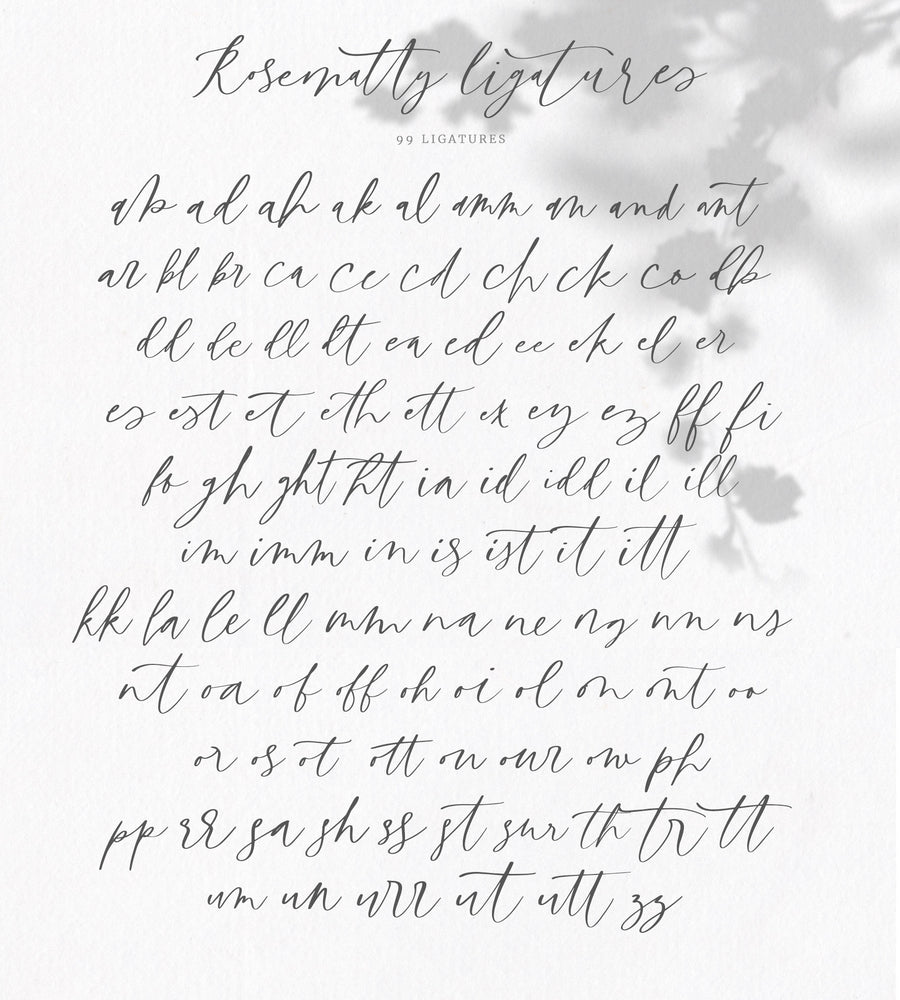 Rosematty ligatures
99 LIGATURES
ab ad ah ak al amm an and ant
ar bl br ca ce cd ch ck co db
dd de dl dt ea ed ee ek el er
es est et eth ett ex ey ez ff fi
fo gh ght ht ia id idd il ill
im imm in is ist it itt
kk la le ll mm na ne ng nn ns
nt oa of off oh oi ol on ont oo
or os ot ott ou our ow ph
pp rr sa sh ss st sur th tr tt
um un urr ut utt zz